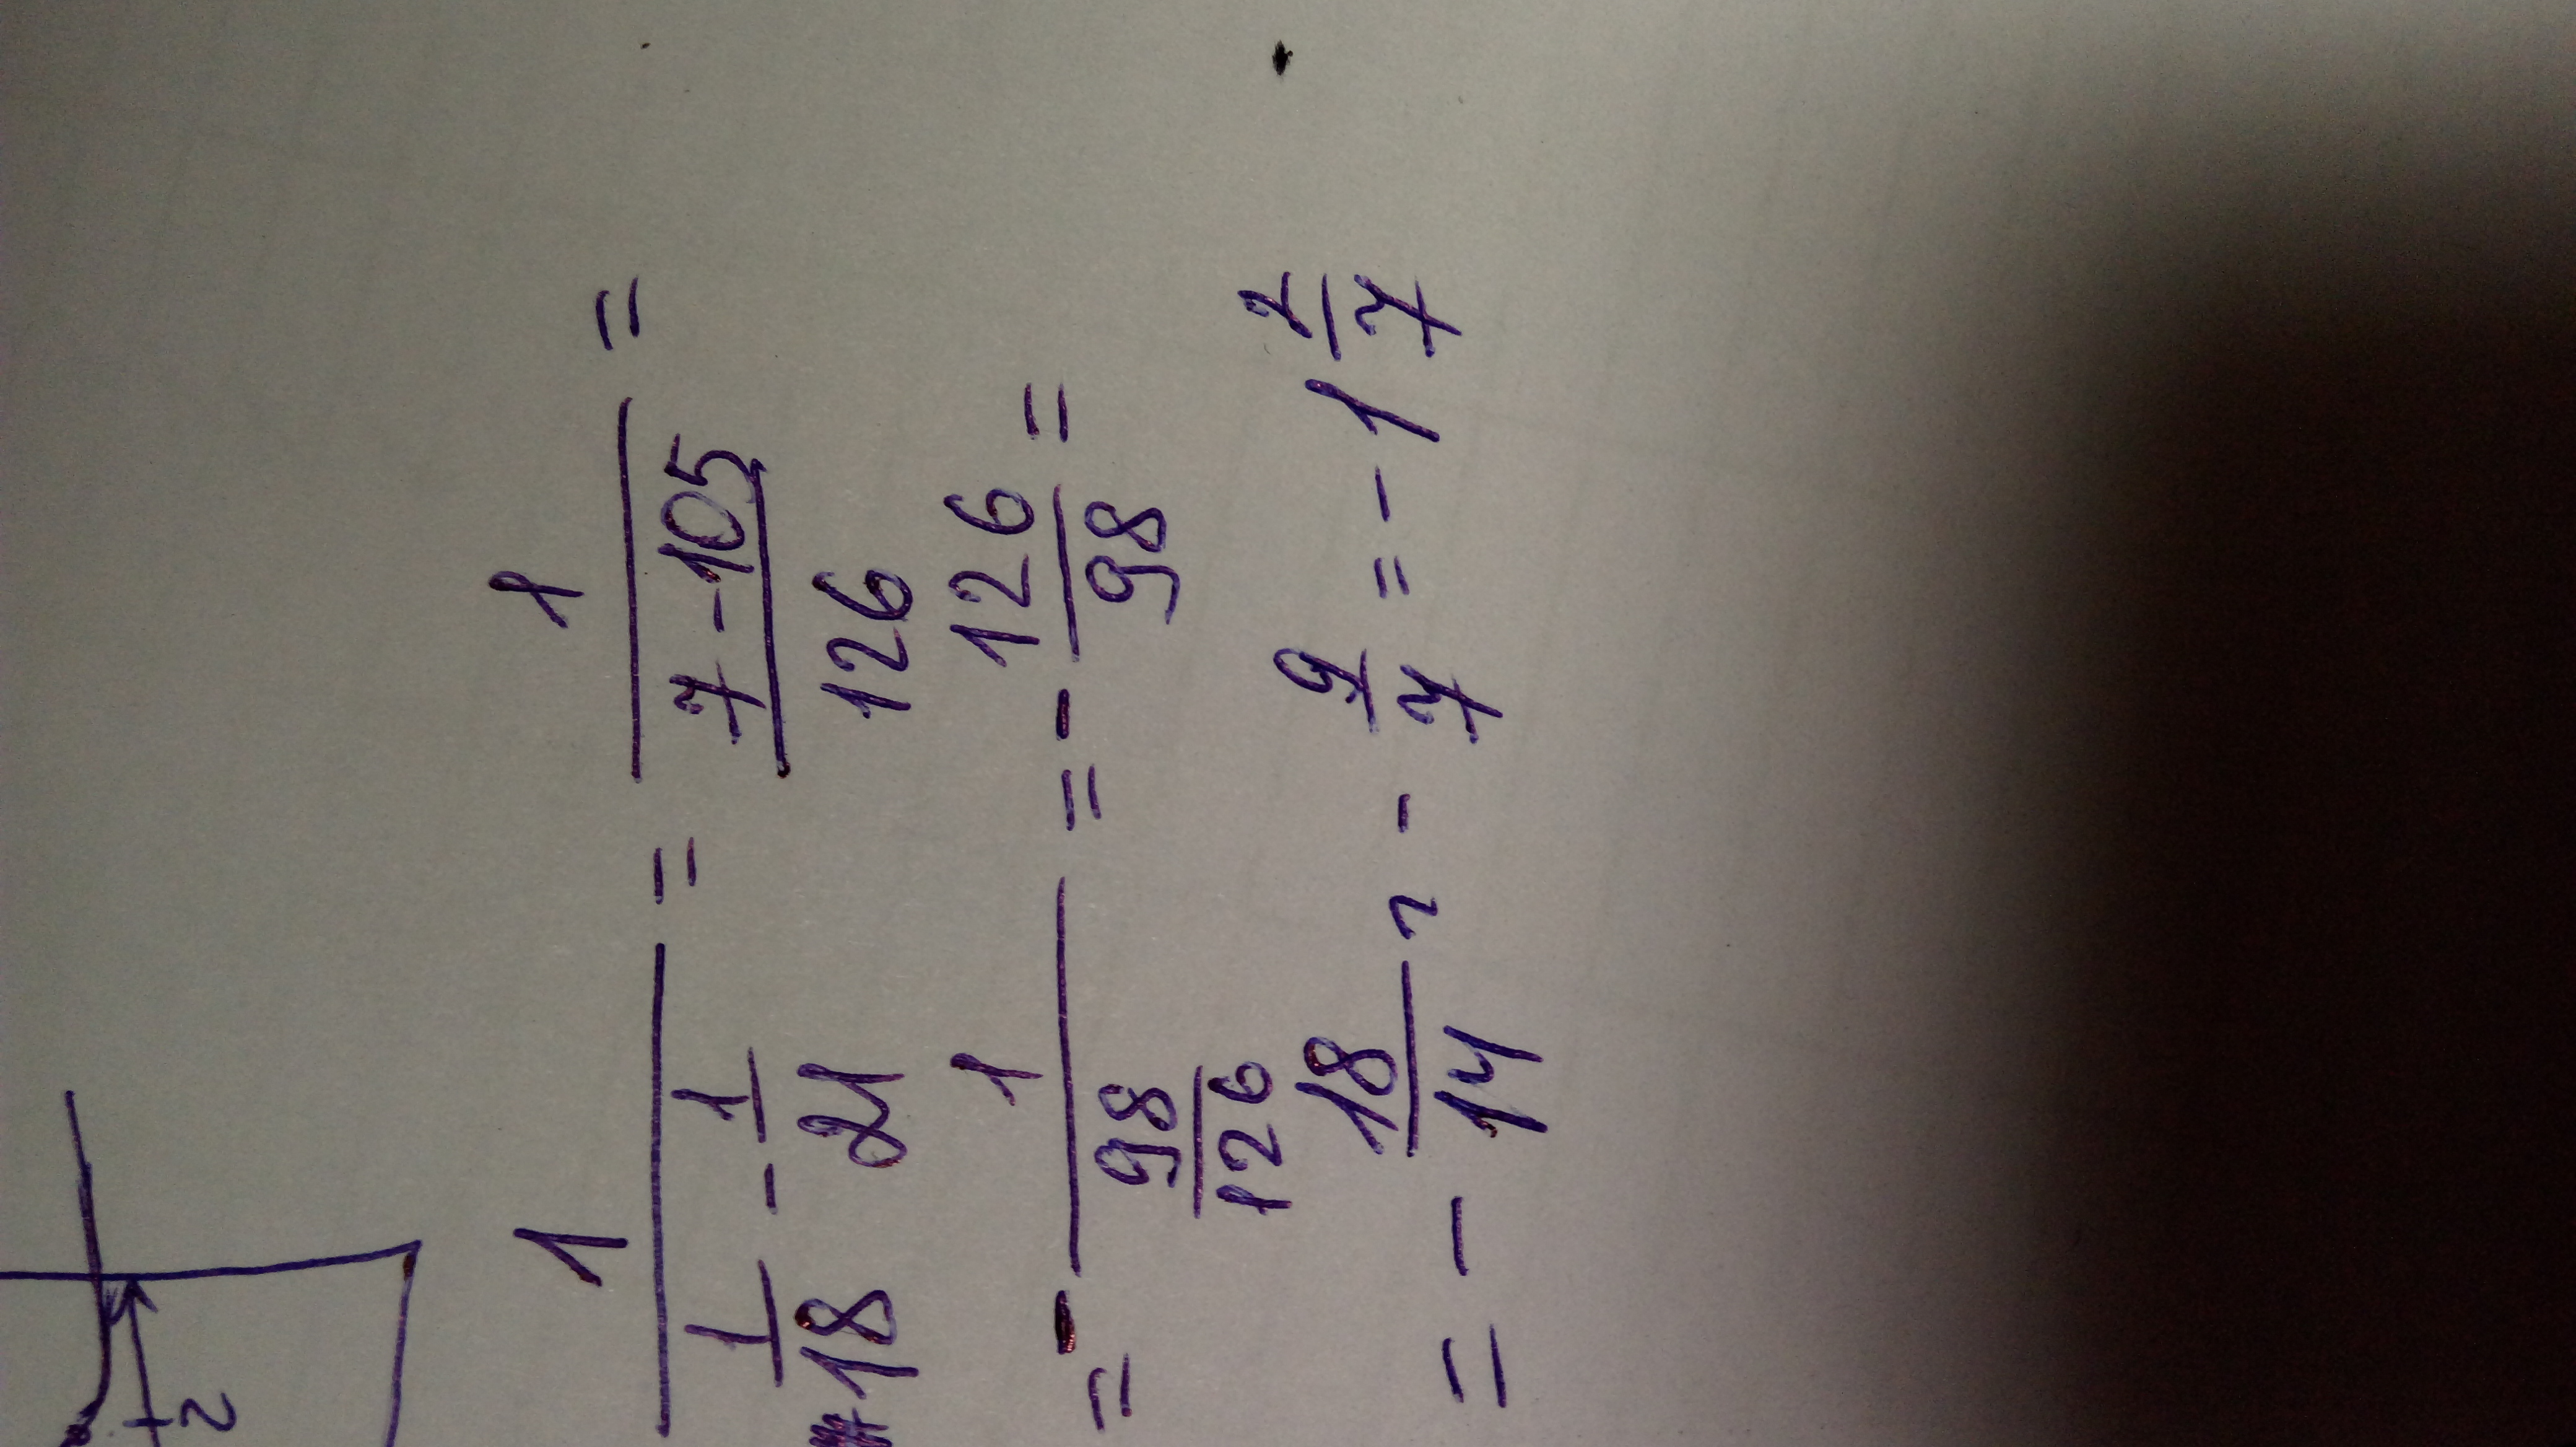 1/(1/18 - 1/21) = 1/((7-105)/126) =
= - 1/(98/126) = - 126/98 =
= - 18/14 = - 9/7 = - 1 2/7
2